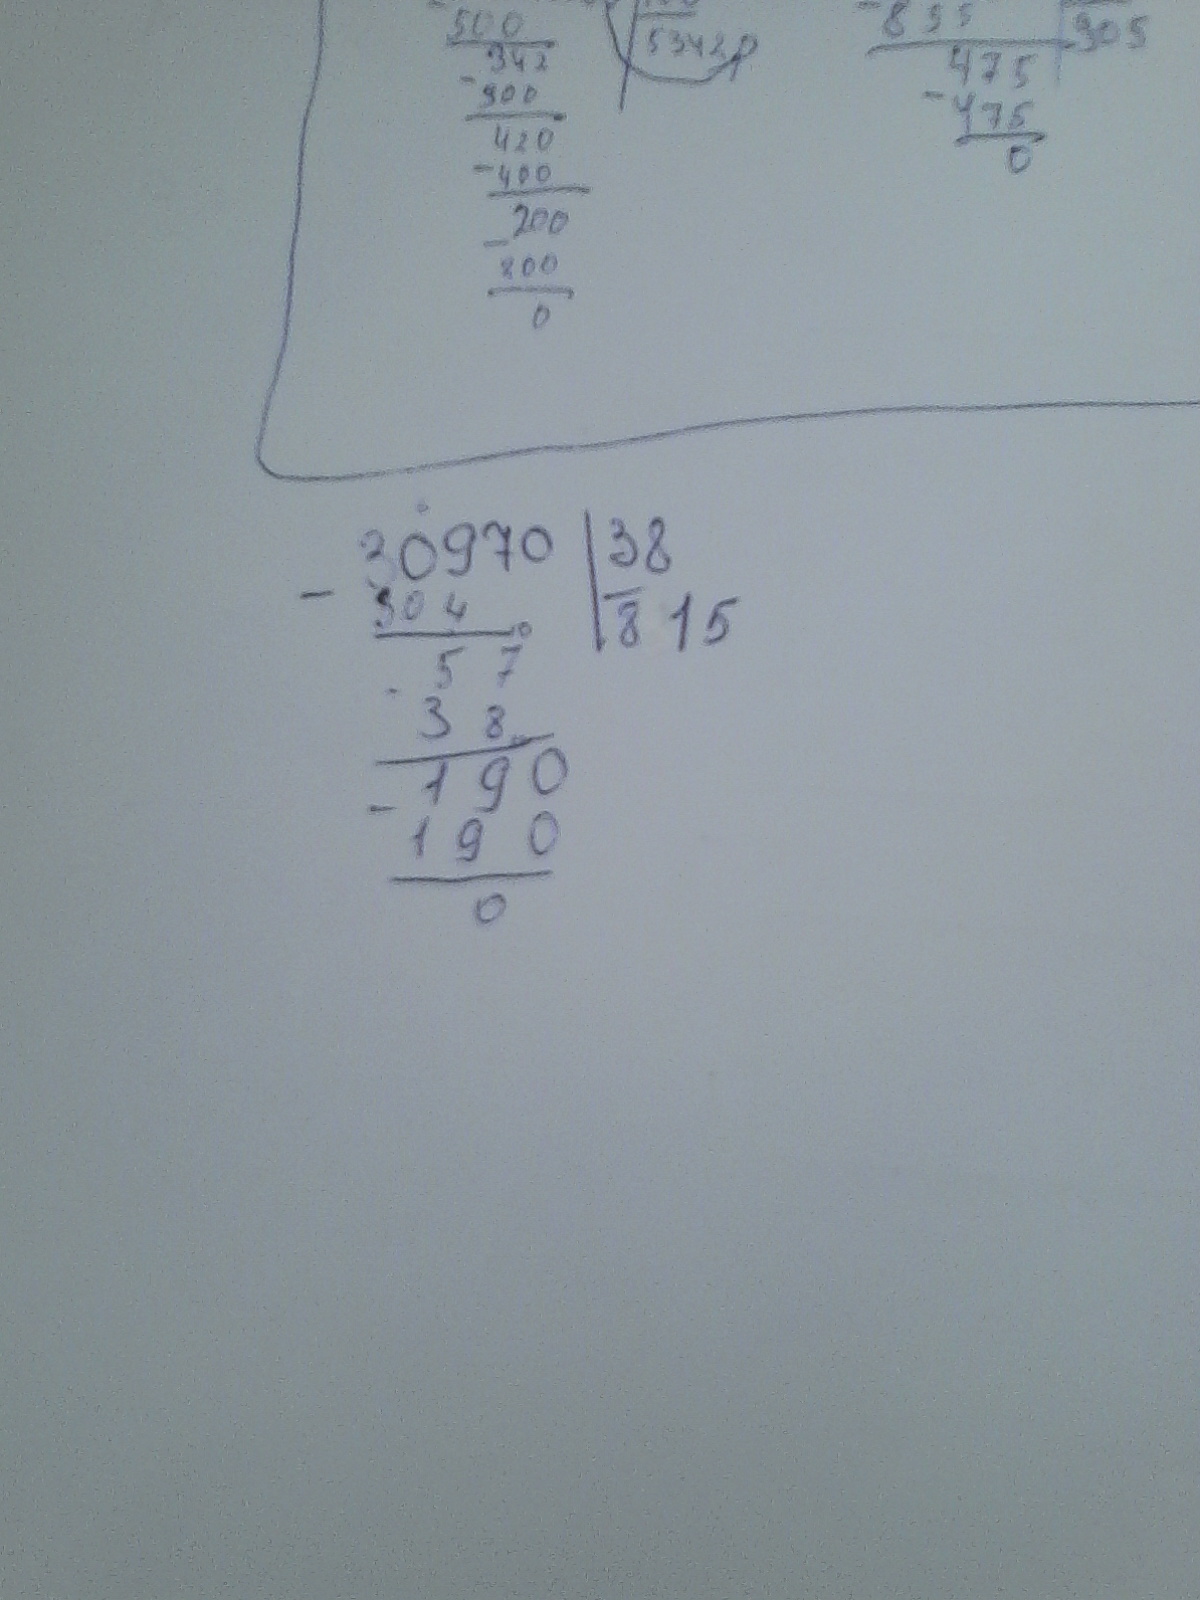 500
53420
342
- 300
420
- 400
200
- 200
0
- 855
905
475
- 475
0
30970 38
- 304 815
57
- 38
190
- 190
0